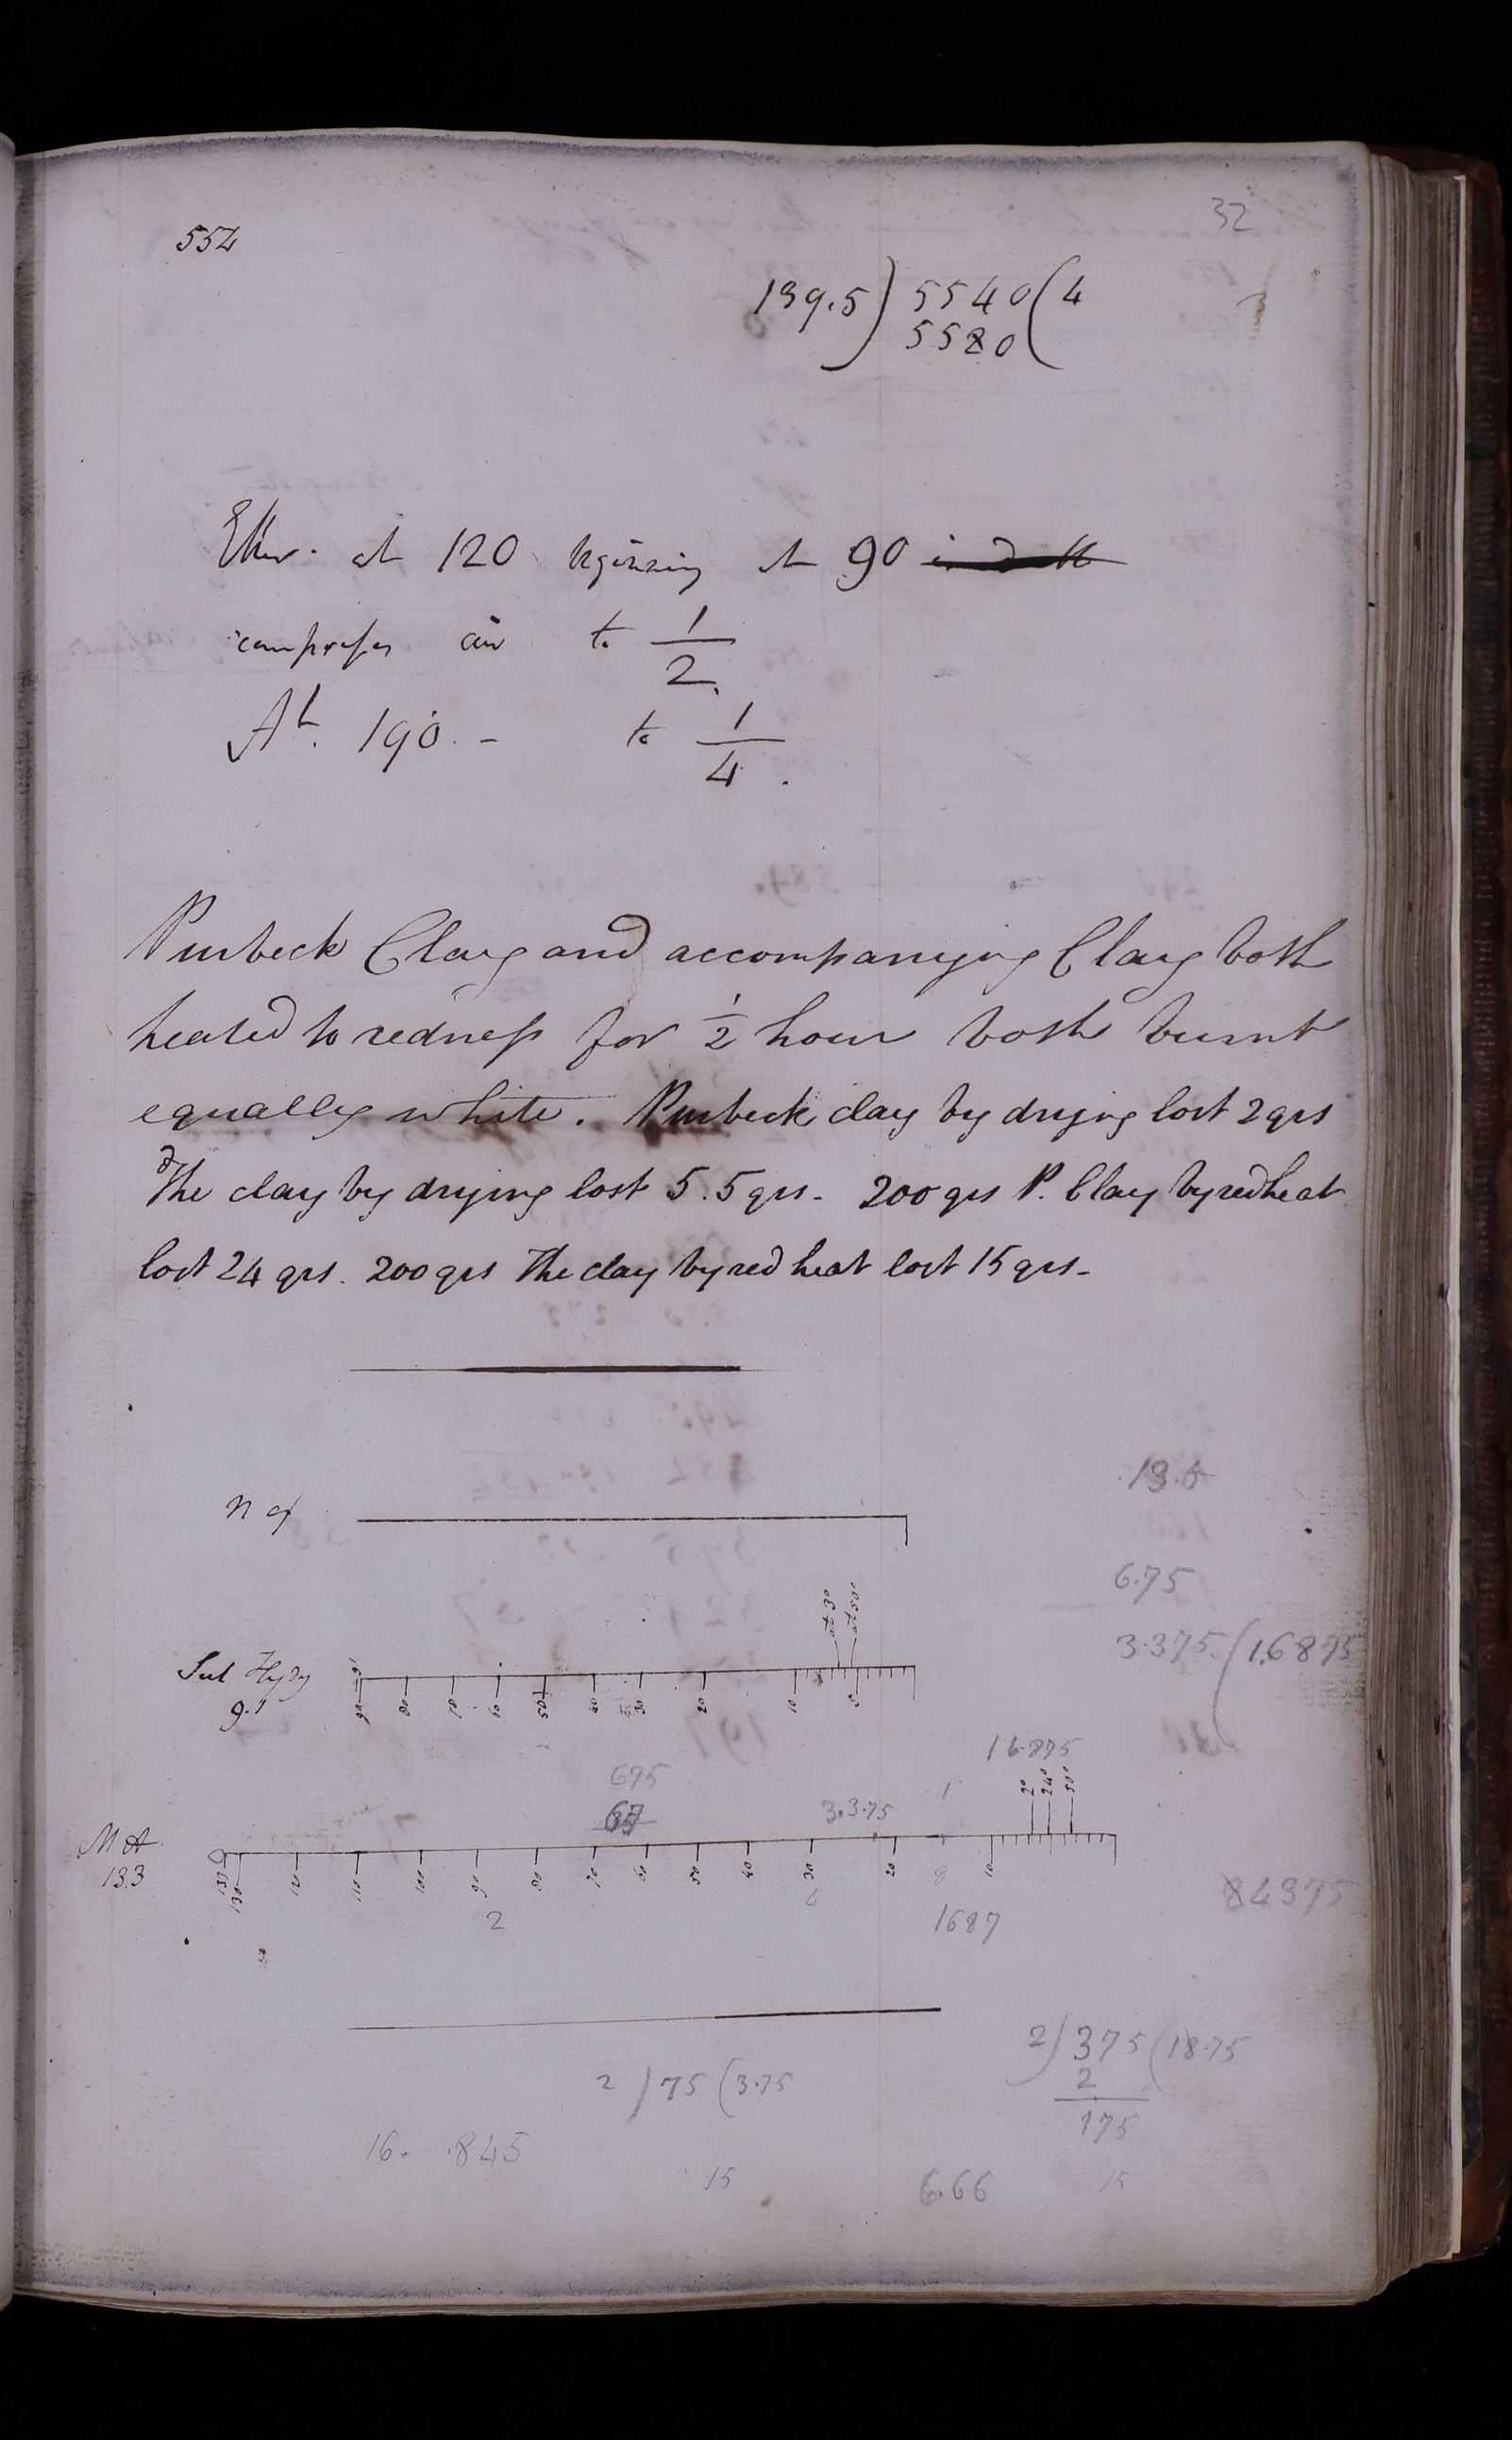 32
554
139.5) 5540 (4
5580
Ether. at 120 beginning at 90
compresses air to 1/2
At. 190. - to 1/4.
Purbeck Clay and accompanying Clay both
heated to redness for 1/2 hour both burnt
equally white. Purbeck clay by drying lost 2 grs
The clay by drying lost 5.5 grs. 200 grs P. Clay by red heat
lost 24 grs. 200 grs The clay by red heat lost 15 grs.
13.5
n of
6.75
at 30 at 50°
3.375 (1.6875
Sul Hydg
9.1
90 80 70 60 50 40 30 20 10 5
16.875
695
67
3.375 1
2° 24° 50°
M A
133
133 130 120 110 100 90 80 70 60 50 40 30 20 10
8
84375
2
1687
2)375(18.75
2
175
2)75(3.75
16. .845
15 6.66 15